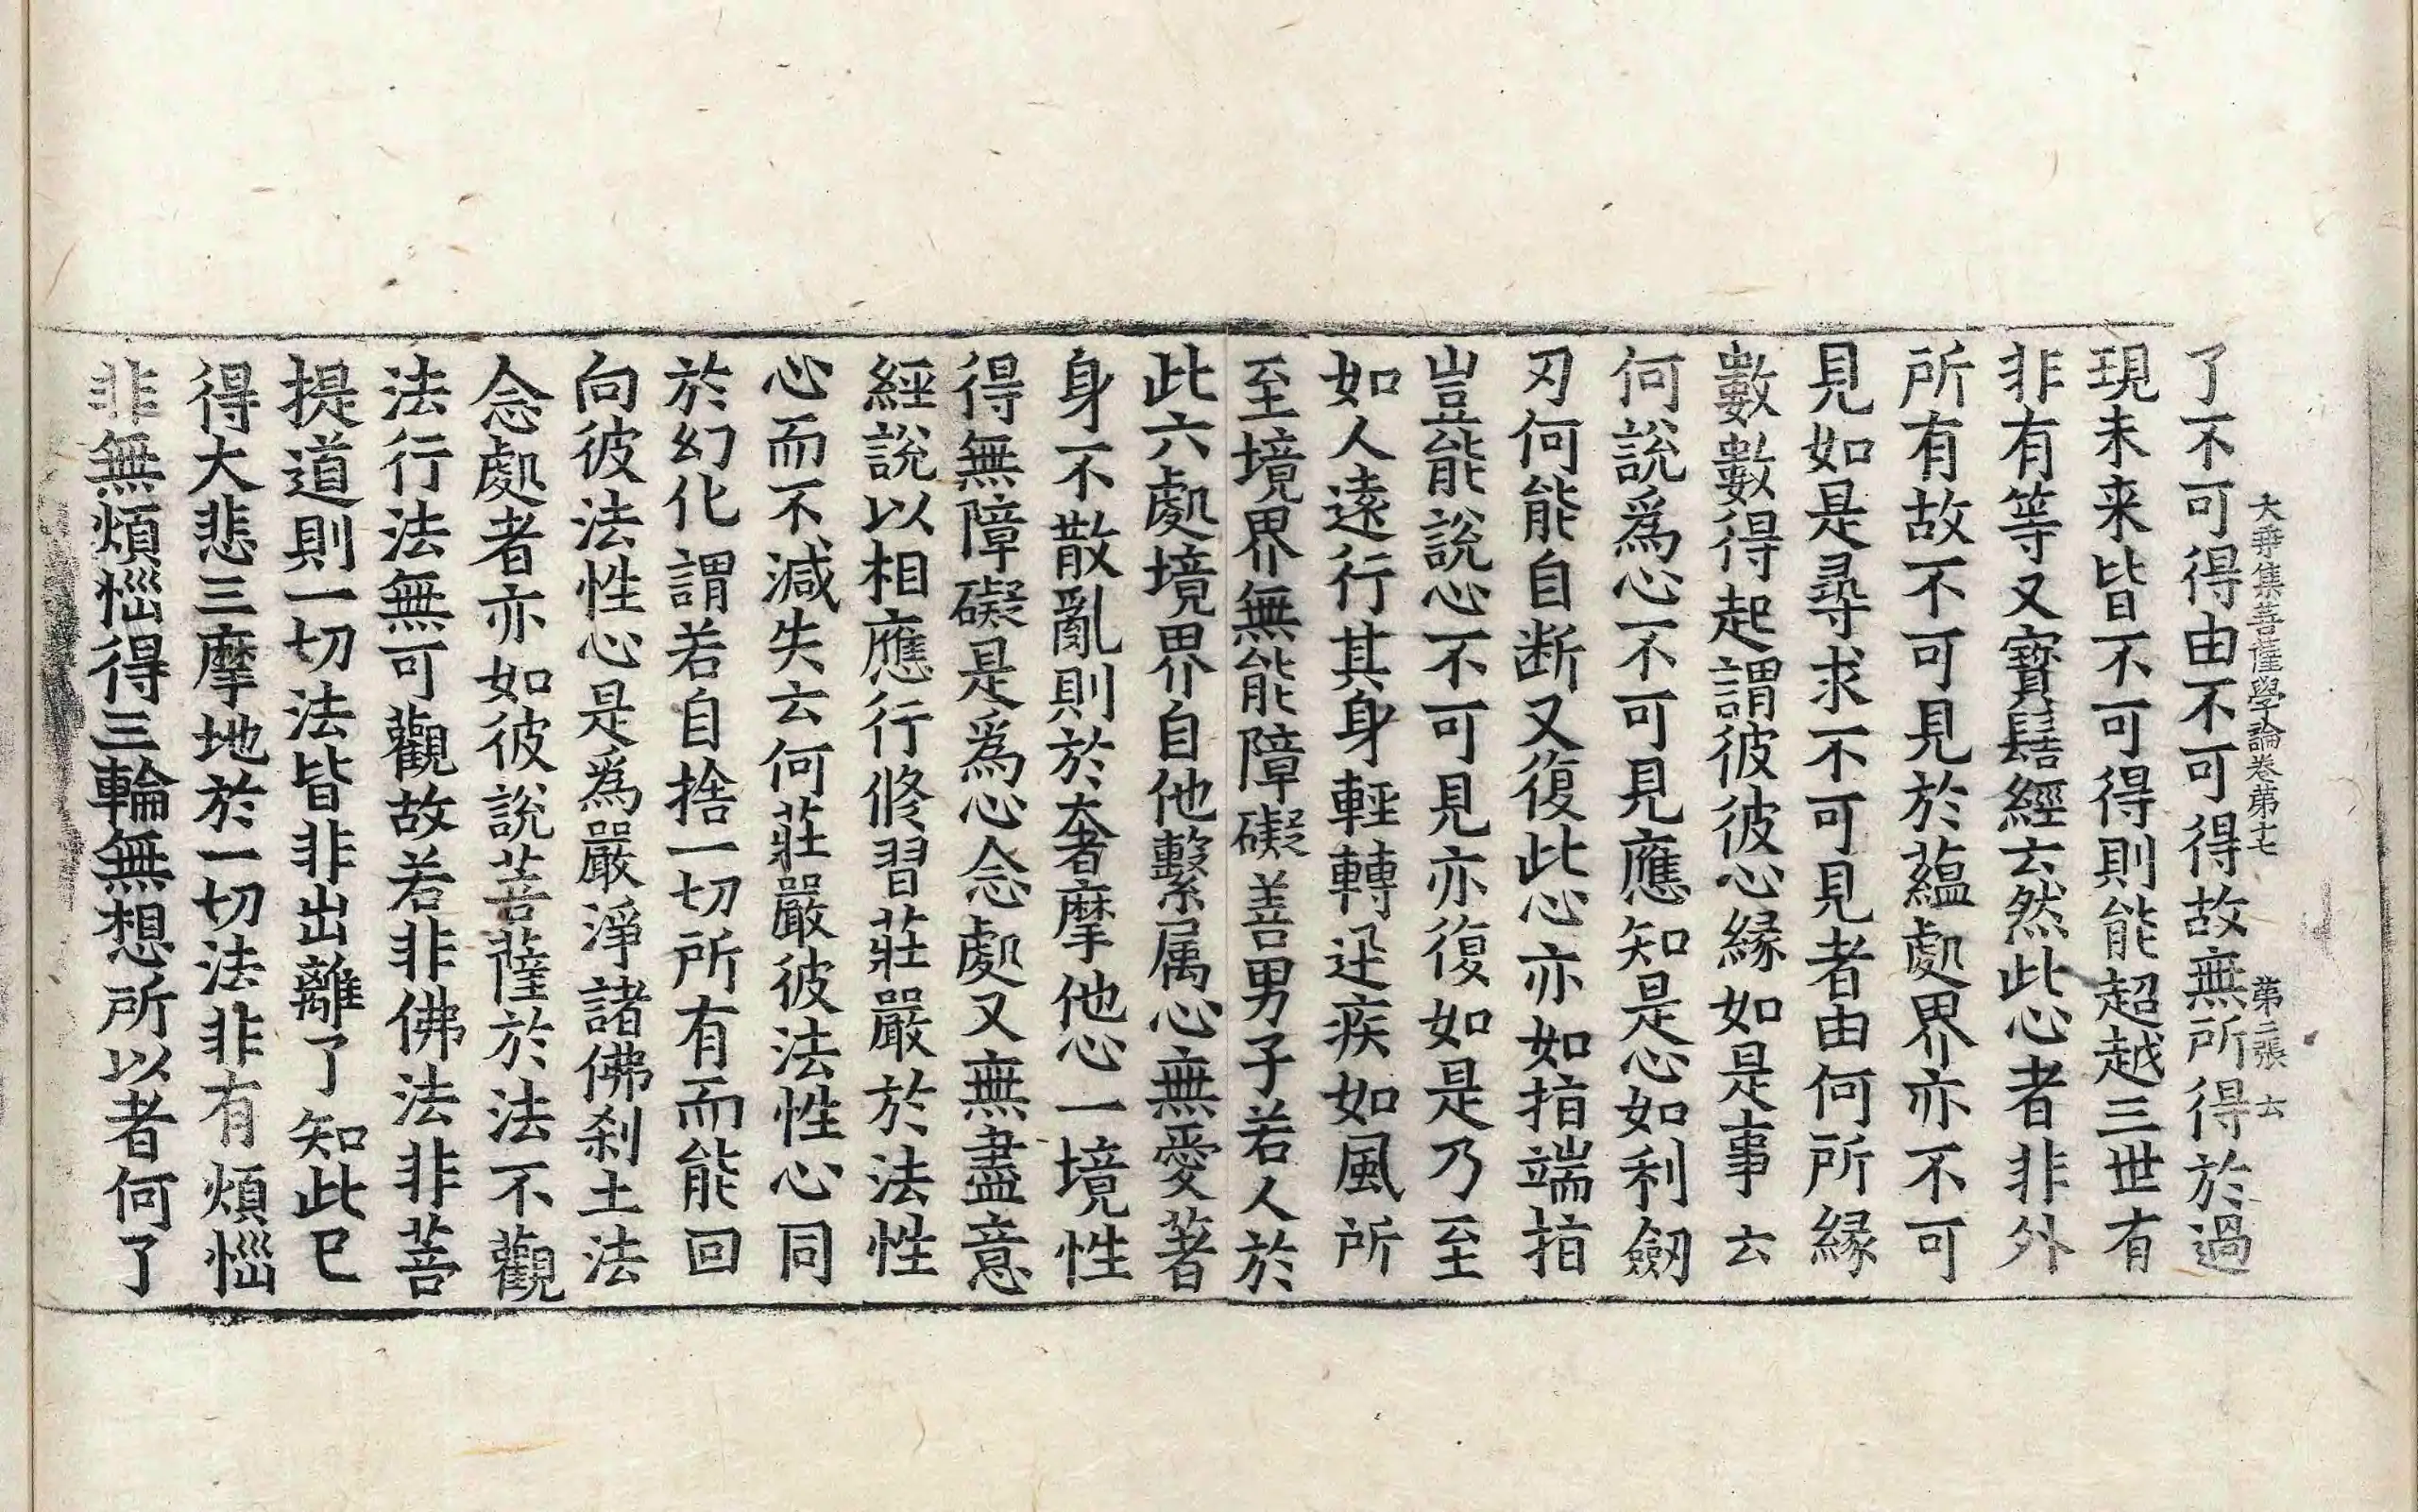 大乗集菩薩學論卷第十七 第二張 云
了不可得由不可得故無所得於過
現未来皆不可得則能超越三世有
非有等又寶髻經云然此心者非外
所有故不可見於蘊處界亦不可
見如是尋求不可見者由何所緣
數數得起謂彼彼心緣如是事云
何說爲心不可見應知是心如利劒
刃何能自断又復此心亦如指端指
豈能說心不可見亦復如是乃至
如人遠行其身輕轉迅疾如風所
至境界無能障礙善男子若人於
此六處境界自他繫属心無愛著
身不散亂則於奢摩他心一境性
得無障礙是爲心念處又無盡意
經說以相應行修習莊嚴於法性
心而不減失云何莊嚴彼法性心同
於幻化謂若自捨一切所有而能回
向彼法性心是爲嚴淨諸佛刹土法
念處者亦如彼說菩薩於法不觀
法行法無可觀故若非佛法非菩
提道則一切法皆非出離了知此已
得大悲三摩地於一切法非有煩惱
非無煩惱得三輪無想所以者何了